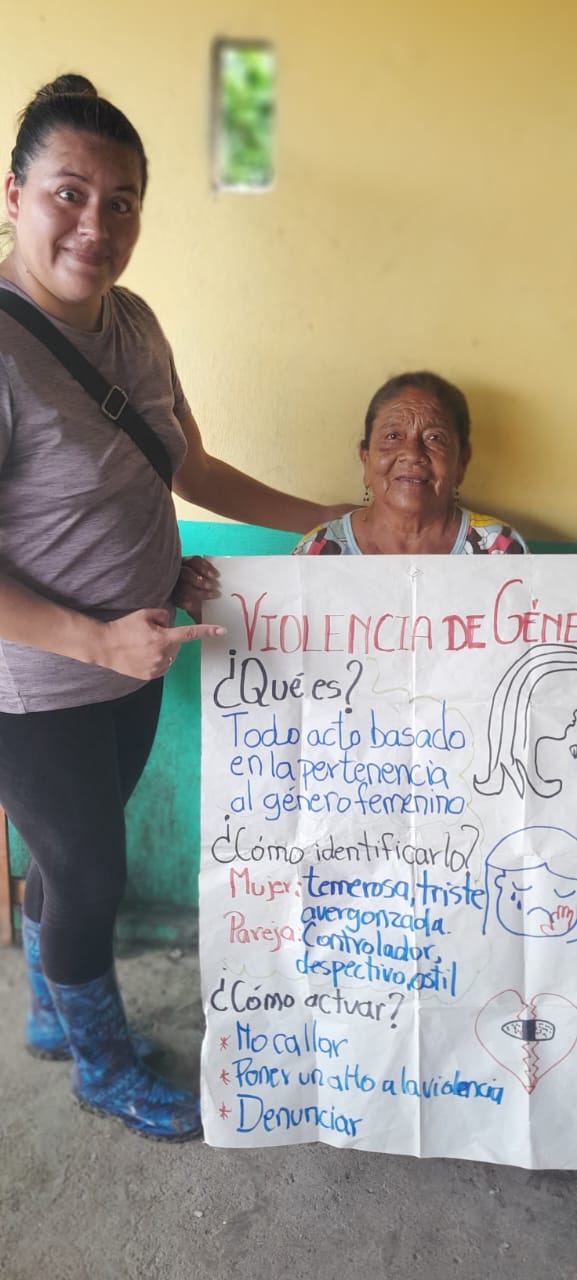 VIOLENCIA DE GÉNE
¿Qué es?
Todo acto basado
en la pertenencia
al género femenino
¿Cómo identificarlo?
Mujer: temerosa, triste
avergonzada.
Pareja: Controlador,
despectivo, ostil
¿Cómo actuar?
* No callar
* Poner un alto a la violencia
* Denunciar